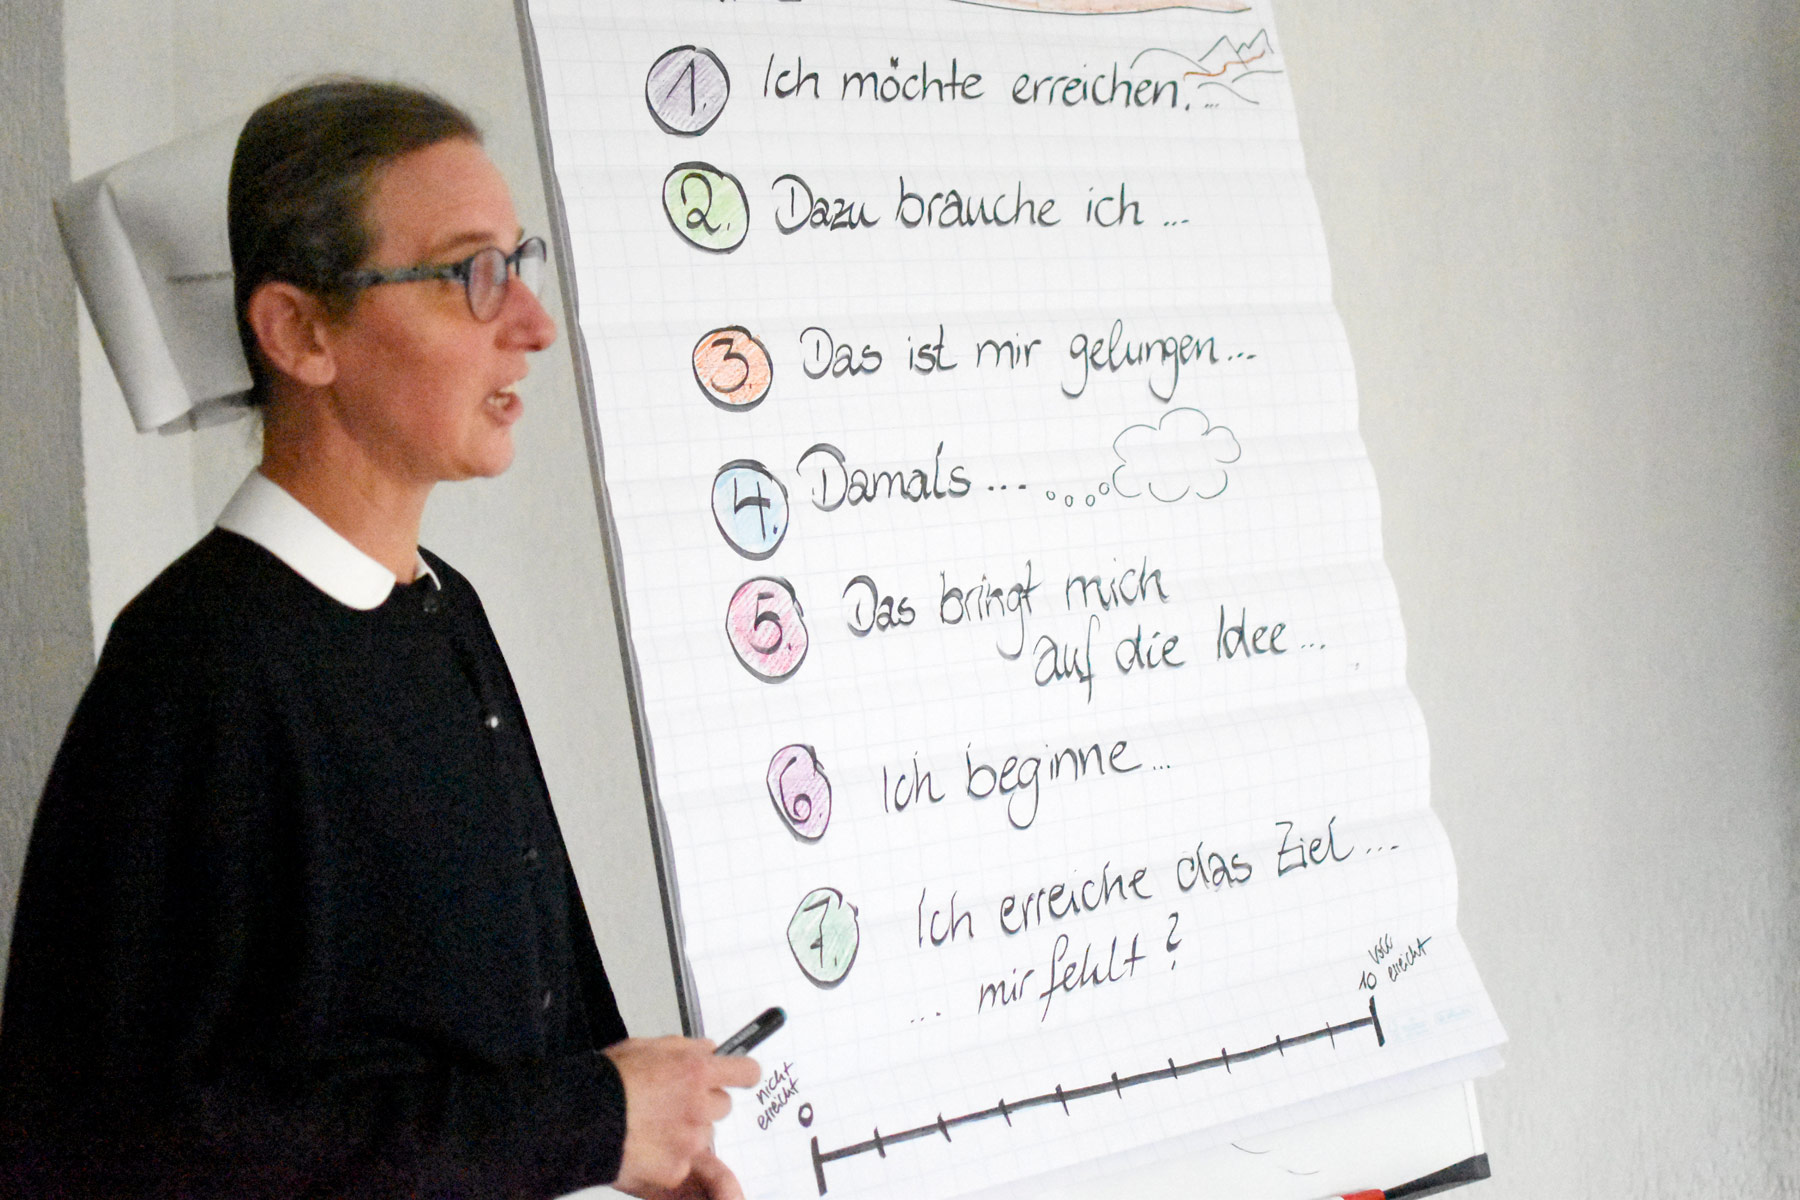 1. Ich möchte erreichen...
2. Dazu brauche ich ...
3. Das ist mir gelungen...
4. Damals ...
5. Das bringt mich
auf die Idee...
6. Ich beginne...
7. Ich erreiche das Ziel...
... mir fehlt?
nicht
erreicht
0
10
voll
erreicht